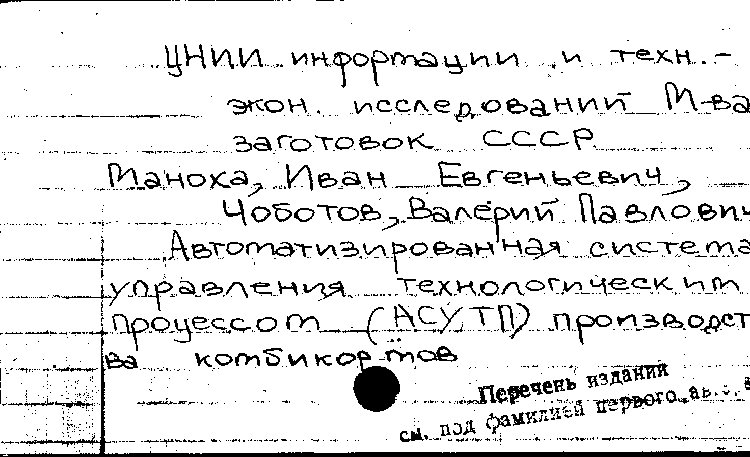 ЦНИИ информации и техн.-
экон. исследований М-ва
заготовок СССР
Маноха, Иван Евгеньевич,
Чоботов, Валерий Павлович
Автоматизированная система
управления технологическим
процессом (АСУТП) производст
ва комбикормов
Перечень издания
см. под фамилией первого